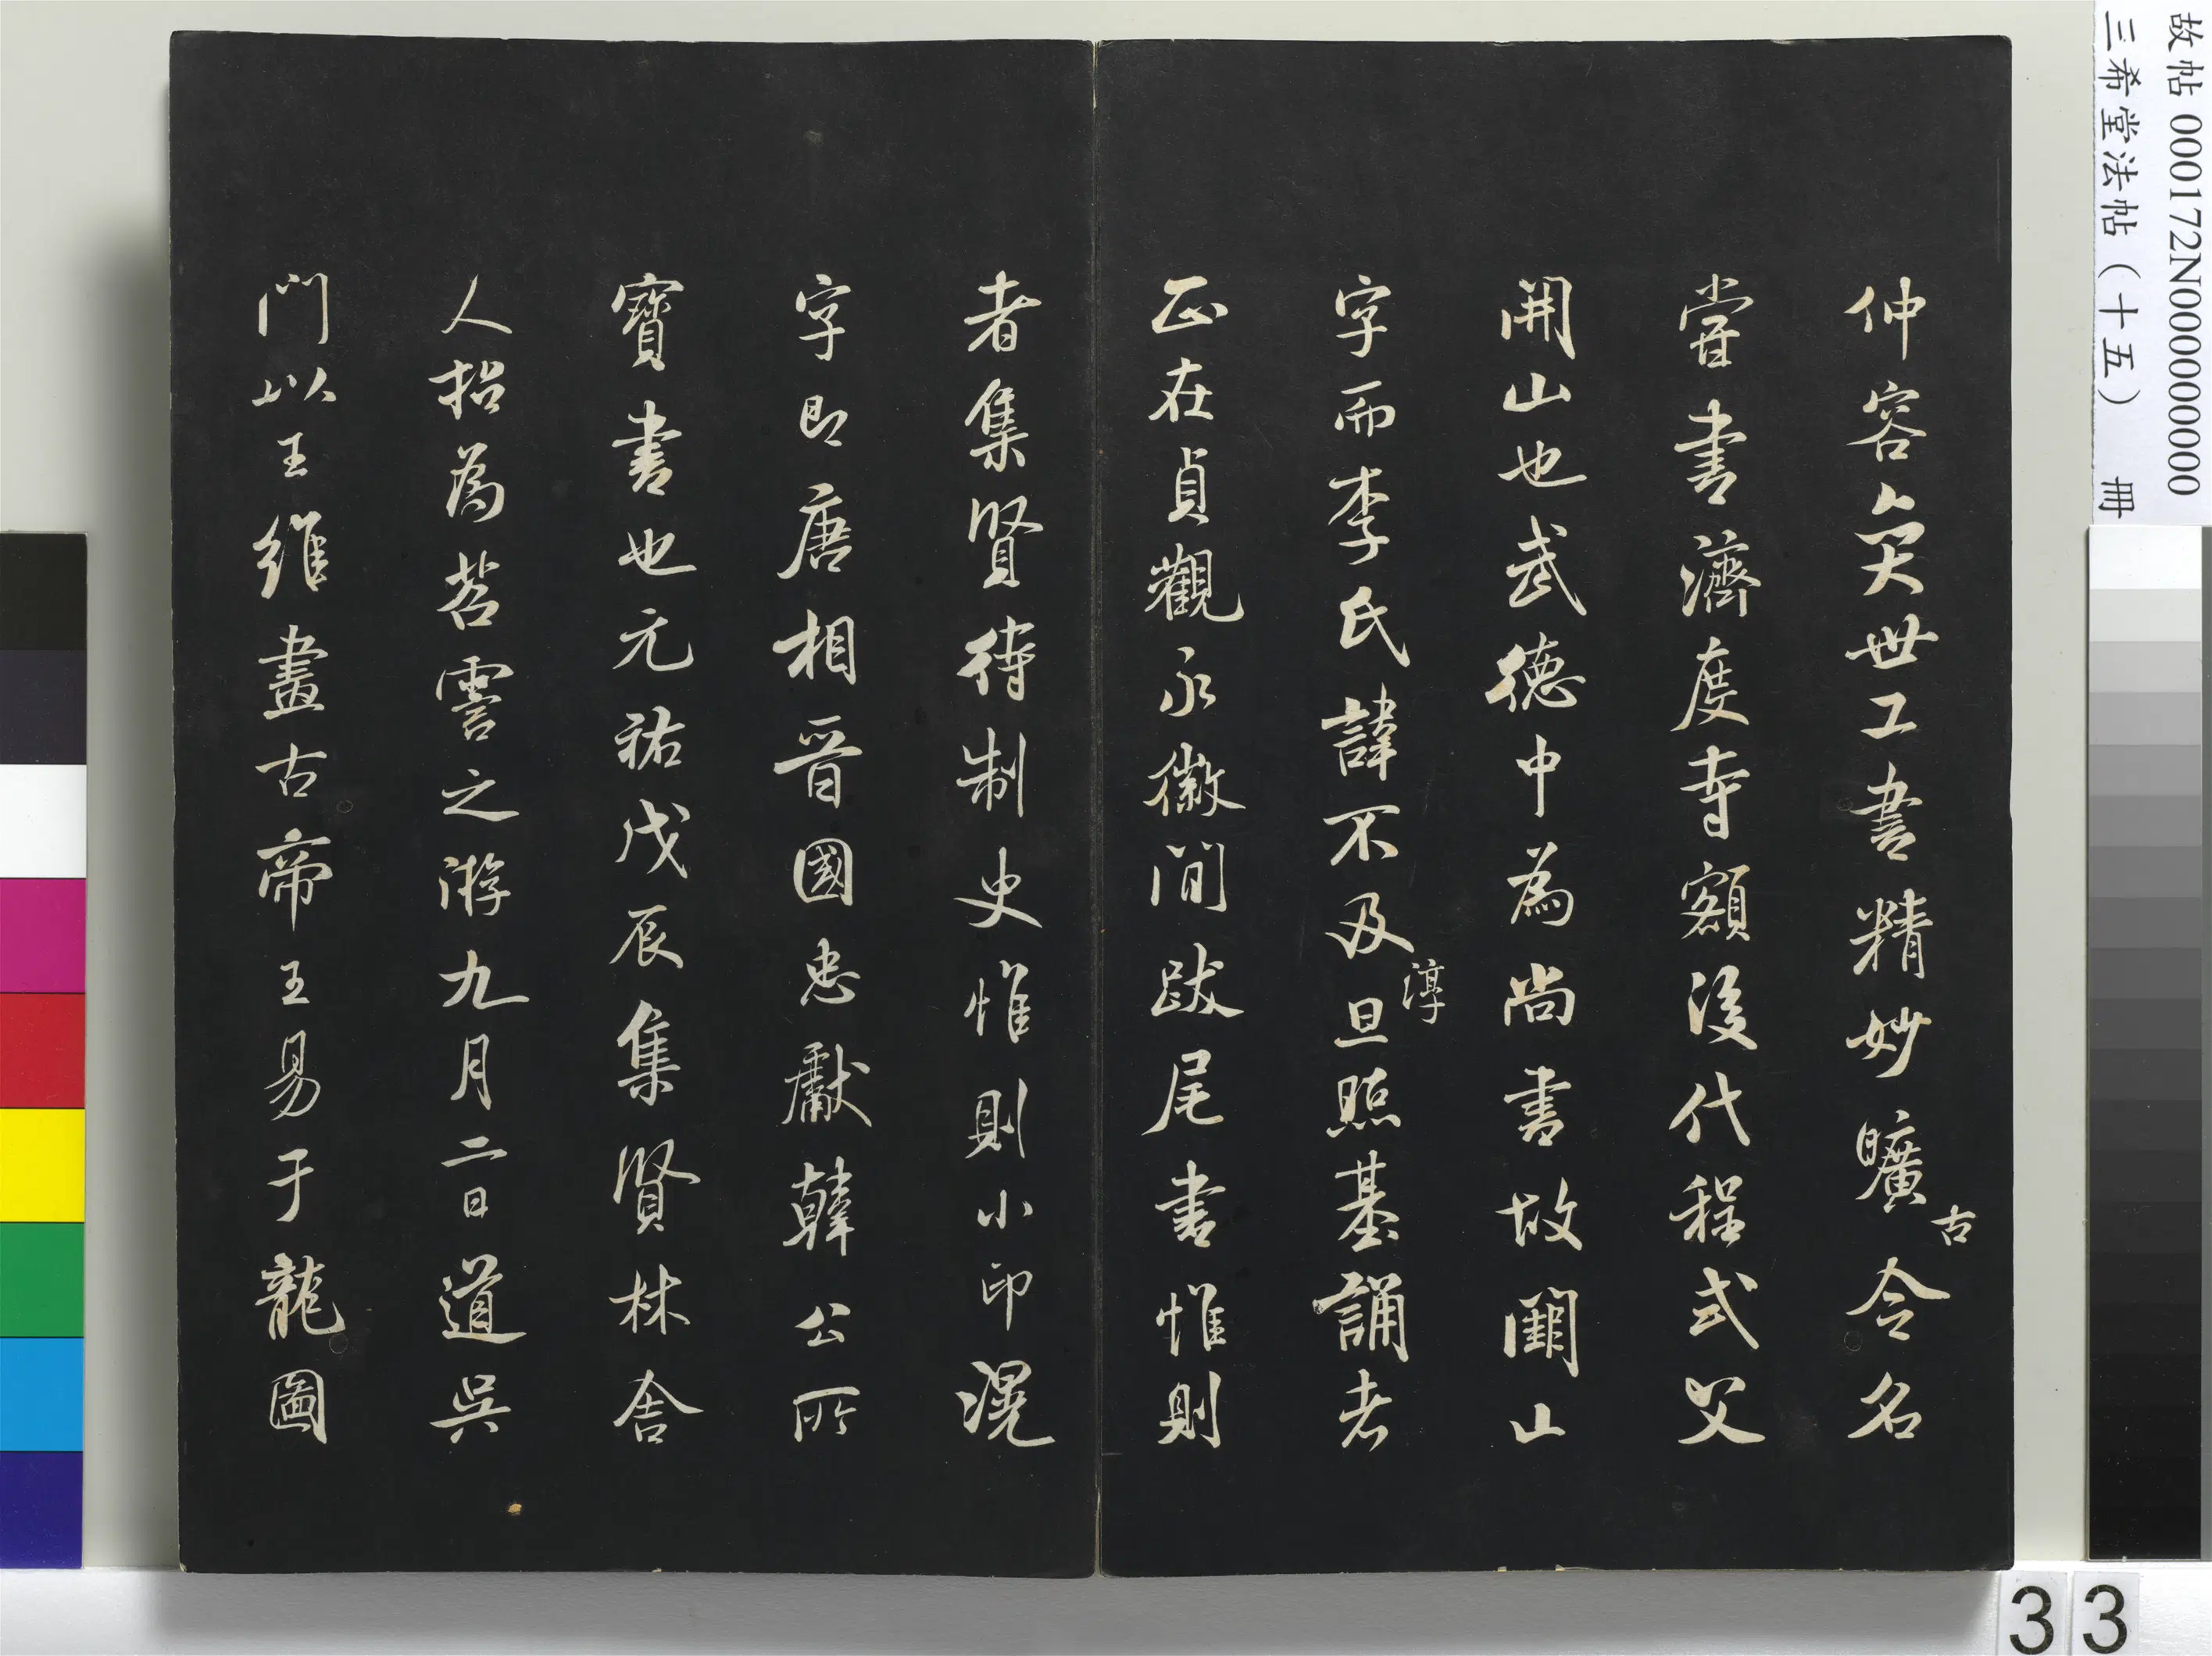 故帖 000172N000000000
三希堂法帖（十五） 冊
仲容奕世工書精妙曠古令名
嘗書濟度寺額後代程式父
開山也武德中為尚書故闕山
字而李氏諱不及淳旦照基誦者
正在貞觀永徽間跋尾書惟則
者集賢待制史惟則小印滉
字即唐相晉國忠獻韓公所
寶書也元祐戊辰集賢林舍
人招為苕霅之游九月二日道吳
門以王維畫古帝王易于龍圖
33